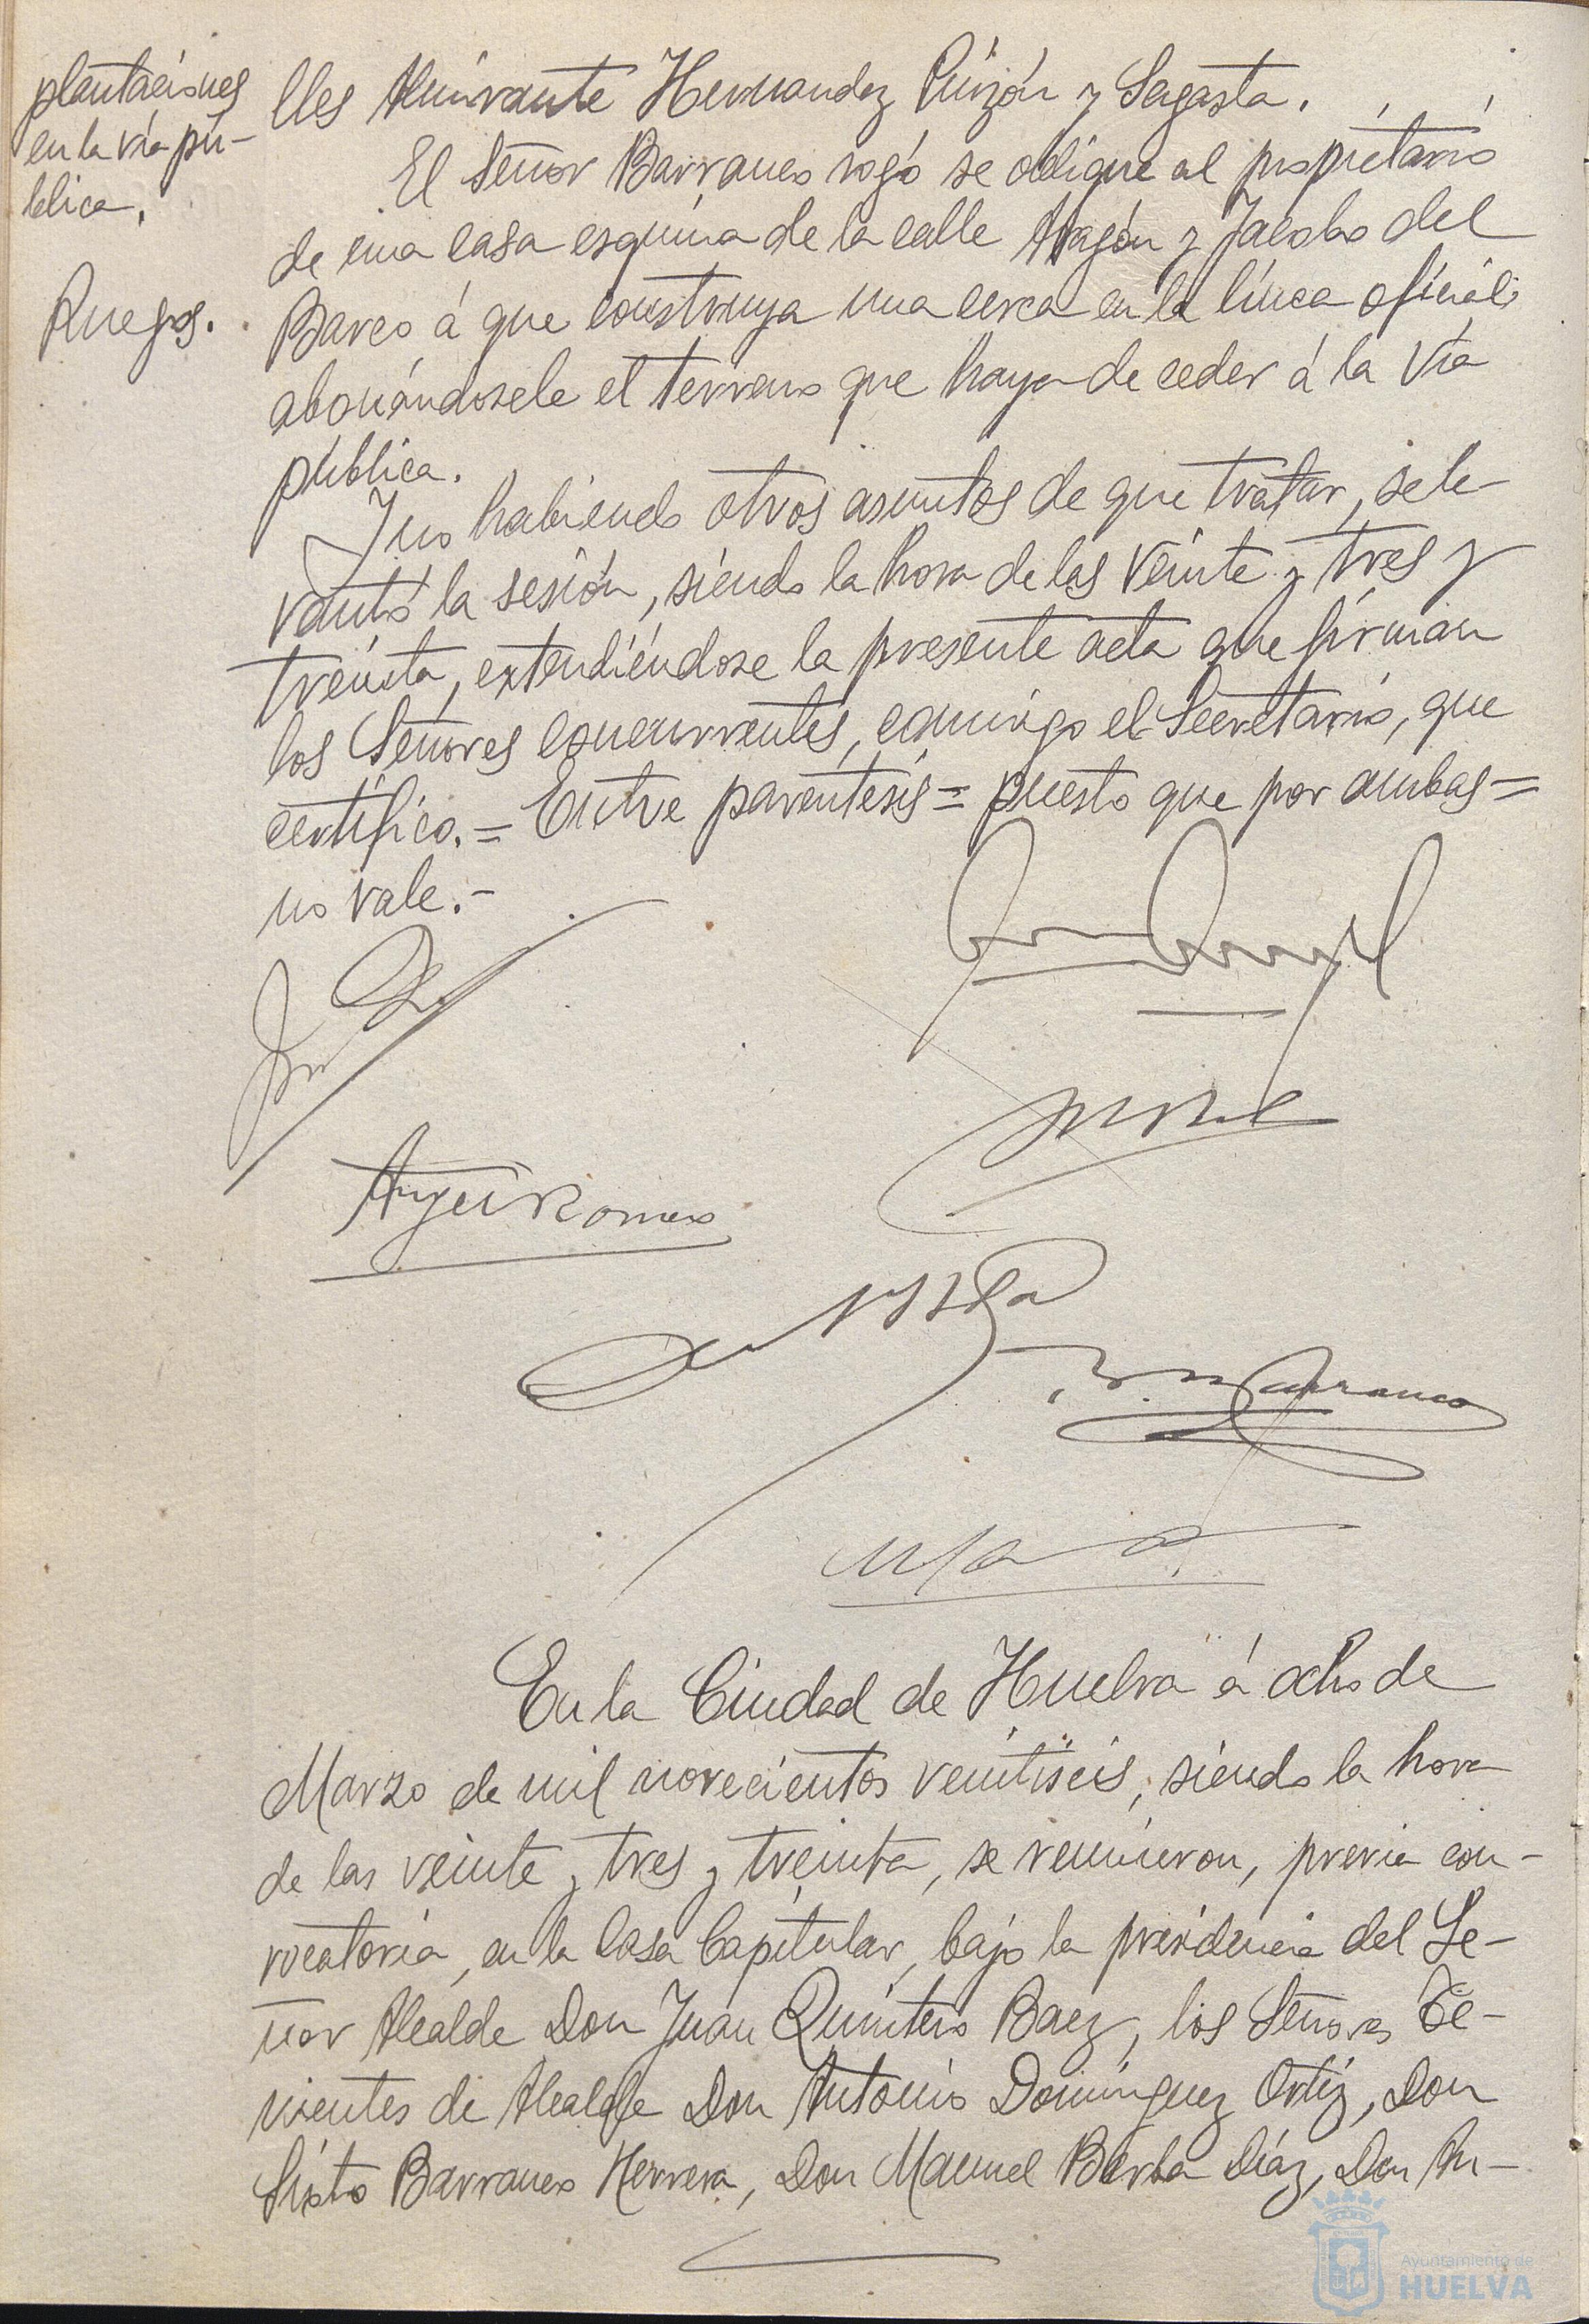 plantaciones
en la vía pú-
blica.
Ruegos.
lles Almirante Hernandez Pinzón y Sagasta.
El Señor Barranco rogó se obligue al propietario
de una casa esquina de la calle Aragón y Jacobo del
Barco á que construya una cerca en la línea oficial
abonándosele el terreno que haya de ceder á la vía
pública.
Y no habiendo otros asuntos de que tratar, se le-
vantó la sesión, siendo la hora de las veinte y tres y
treinta, extendiéndose la presente acta que firman
los Señores concurrentes, conmigo el Secretario, que
certifico.= Entre paréntesis = puesto que por ambas =
no vale.-
Angel Romero
Barranco
En la Ciudad de Huelva á ocho de
Marzo de mil novecientos veintiseis, siendo la hora
de las veinte y tres y treinta, se reunieron, previa con-
vocatoria, en la Casa Capitular, bajo la presidencia del Se-
ñor Alcalde Don Juan Quintero Baez, los Señores Te-
nientes de Alcalde Don Antonio Domínguez Ortiz, Don
Sixto Barranco Herrera, Don Manuel Barba Díaz, Don An-
Ayuntamiento de
HUELVA